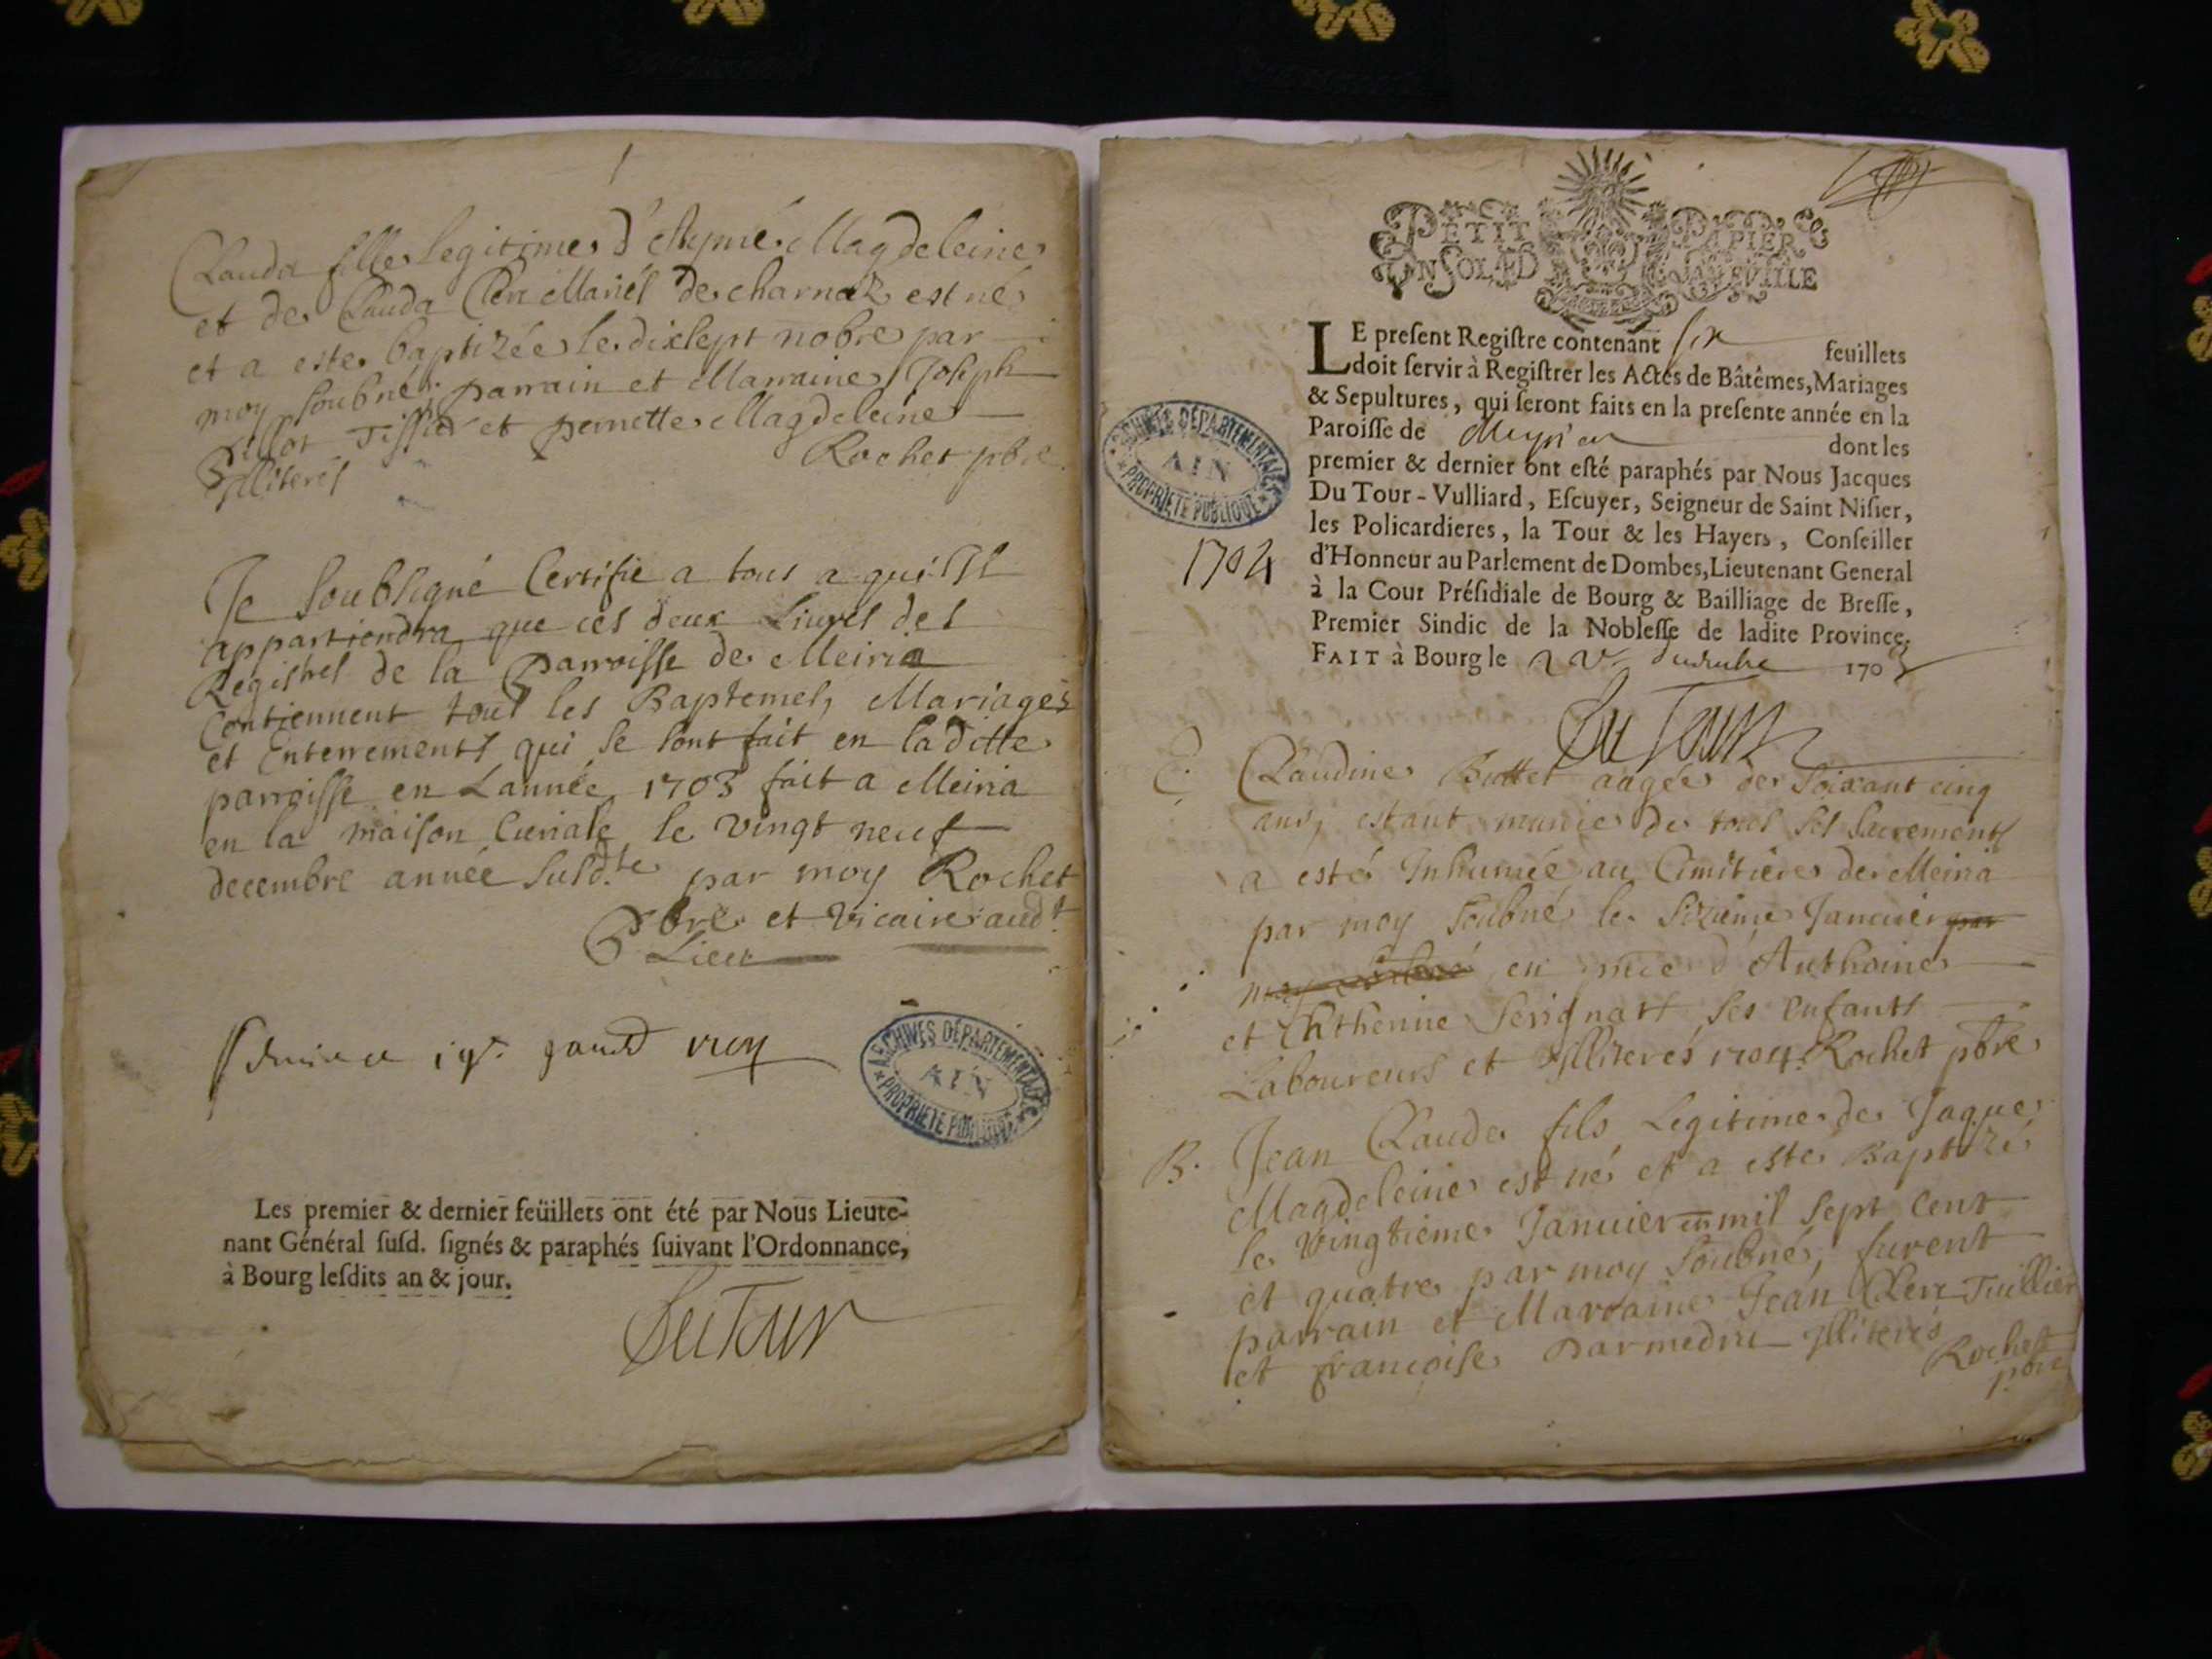 Clauda fille legitime d'Aymé Magdeleine
et de Clauda Clere Mariés de charnaz est né
et a este baptizée le dixsept nobre par
moy soubné. parrain et Marraine Joseph
Tissier et pernette Magdeleine
Illiterés Rochet pbre
Je soubsigné Certifie a tous a qu'il
appartiendra que ces deux Livres des
Registres de la parroisse de Meiria
Contiennent tous les Baptemes, Mariages
et Enterrements qui se sont fait en laditte
parroisse en Lannée 1703 fait a Meiria
en la maison Curiale le vingt neuf
decembre année susd.te par moy Rochet
Pbre et vicaire aud.t
Lieu
ARCHIVES DÉPARTEMENTALES
AIN
PROPRIÉTÉ PUBLIQUE
Les premier & dernier feüillets ont été par Nous Lieute-
nant Général susd. signés & paraphés suivant l'Ordonnance,
à Bourg lesdits an & jour.
DuTour
PETIT PAPIER
UN SOL 4D LA FEUILLE
LE present Registre contenant six feuillets
doit servir à Registrer les Actes de Bâtêmes, Mariages
& Sepultures, qui seront faits en la presente année en la
Paroisse de Meyria dont les
premier & dernier ont esté paraphés par Nous Jacques
Du Tour-Vulliard, Escuyer, Seigneur de Saint Nisier,
les Policardieres, la Tour & les Hayers, Conseiller
d'Honneur au Parlement de Dombes, Lieutenant General
à la Cour Présidiale de Bourg & Bailliage de Bresse,
Premier Sindic de la Noblesse de ladite Province.
FAIT à Bourg le 170
ARCHIVES DÉPARTEMENTALES
AIN
PROPRIÉTÉ PUBLIQUE
1704
DuTour
E. Claudine Buttet aagée de Soixant cinq
ans, estant munie de tous ses sacrements
a esté Inhumée au Cimitiere de Meiria
par moy soubné le sizieme Janvier par
moy soubné en pnce d'Anthoine
et Chtherine Serignat ses enfants
Laboureurs et Illiterés 1704. Rochet pbre
B. Jean Claude fils Legitime de Jaque
Magdeleine est né et a este Baptizé
le vingtieme Janvier en mil sept cent
et quatre par moy soubné, furent
parrain et Marraine Jean Clerc Tuillier
et francoise parmedru Illiterés
Rochet
pbre